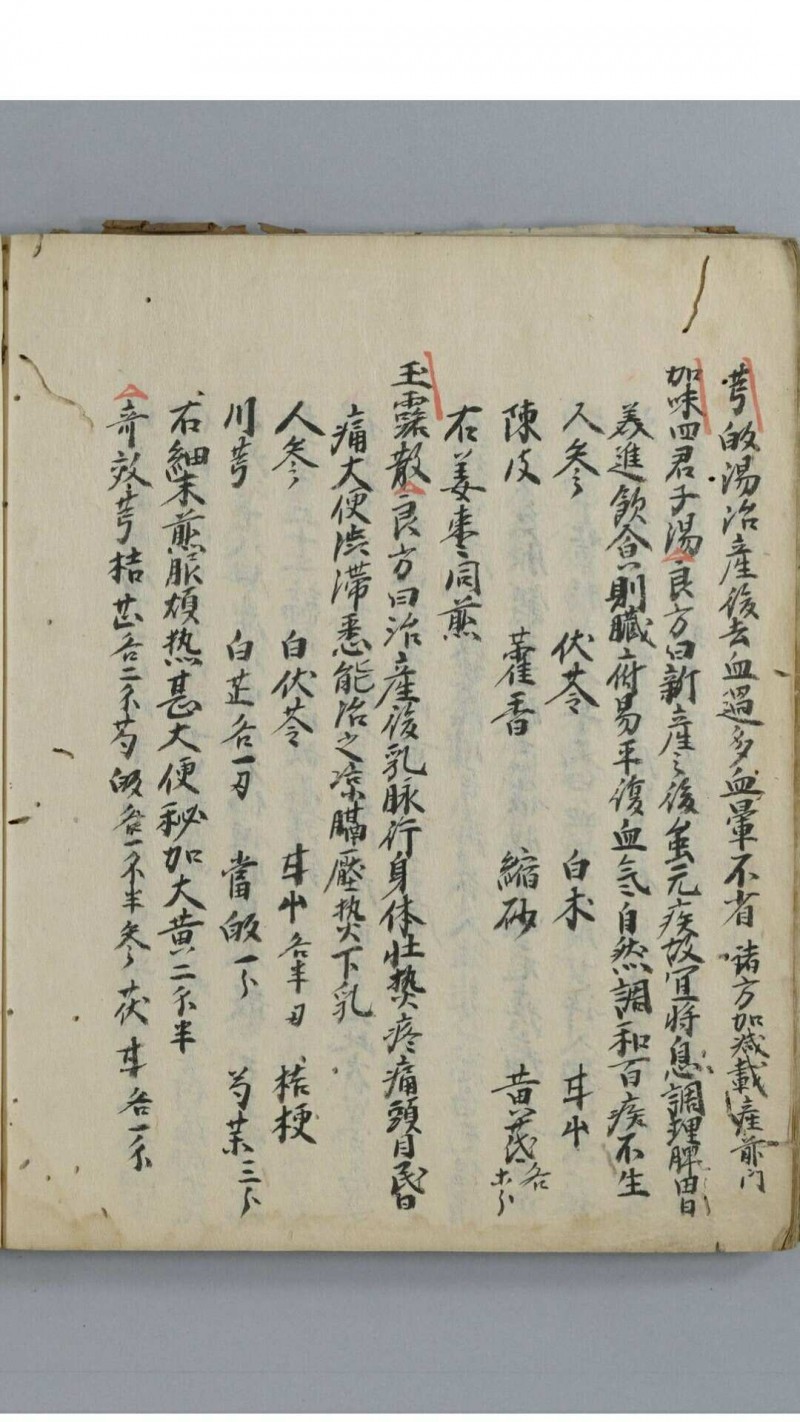 芎皈湯治産後去血過多血暈不省 諸方加减載産前門
加味四君子湯良方曰新産之後虽无疾故宜将息調理脾胃
美進飲食則臓腑易平復血气自然調和百疾不生
人参 伏苓 白朮 甘艸
陳皮 藿香 縮砂 黄茋各
右姜棗同煎
玉露散良方曰治産後乳脉行身体壮热疼痛頭目昏
痛大便渋滞悉能治之凉膈壓热下乳
人参 白伏苓 甘艸各半刄 桔梗
川芎 白芷各一刄 當皈一分 芍药三分
右細末煎服煩热甚大便秘加大黄二分半
奇效芎桔芷各二分芍皈各一分半参茯甘各一分